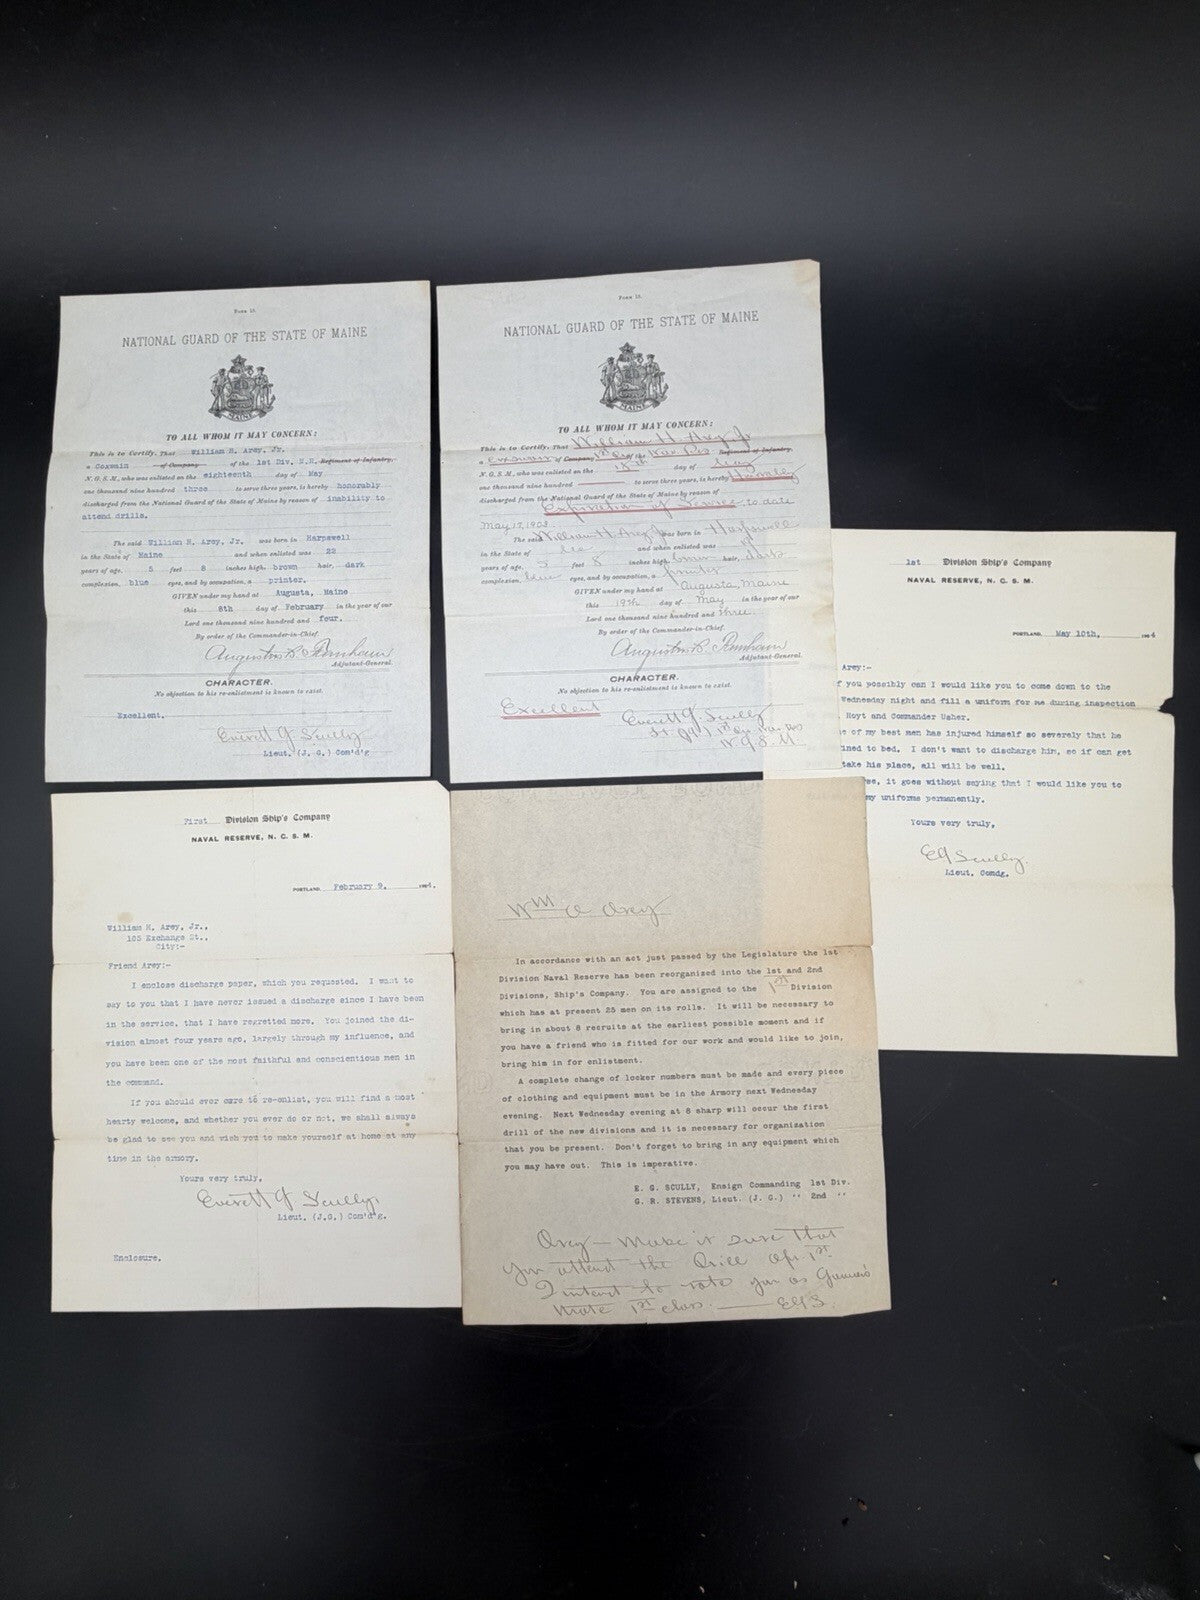 Form 15.
NATIONAL GUARD OF THE STATE OF MAINE
MAINE
TO ALL WHOM IT MAY CONCERN:
This is to Certify, That William H. Arey, Jr.
a Coxswin of Company of the 1st Div. N.R. Regiment of Infantry,
N. G. S. M., who was enlisted on the eighteenth day of May
one thousand nine hundred three to serve three years, is hereby honorably
discharged from the National Guard of the State of Maine by reason of inability to
attend drills.
The said William H. Arey, Jr. was born in Harpswell
in the State of Maine and when enlisted was 22
years of age, 5 feet 8 inches high, brown hair, dark
complexion, blue eyes, and by occupation, a printer.
GIVEN under my hand at Augusta, Maine
this 8th day of February in the year of our
Lord one thousand nine hundred and four.
By order of the Commander-in-Chief.
Augustus B. Farnham
Adjutant-General.
CHARACTER.
No objection to his re-enlistment is known to exist.
Excellent.
Everett G. Scully
Lieut. (J. G.) Com'd'g
Form 15.
NATIONAL GUARD OF THE STATE OF MAINE
MAINE
TO ALL WHOM IT MAY CONCERN:
This is to Certify, That William H. Arey, Jr
a Coxswain of Company 1st Div of the Nav. Res Regiment of Infantry,
N. G. S. M., who was enlisted on the 18th day of May
one thousand nine hundred to serve three years, is hereby Honorably
discharged from the National Guard of the State of Maine by reason of
Expiration of Service, to date
May 17, 1903.
The said William H. Arey Jr was born in Harpswell
in the State of Me and when enlisted was
years of age, 5 feet 8 inches high, brown hair, dark
complexion, blue eyes, and by occupation, a printer
GIVEN under my hand at Augusta, Maine
this 19th day of May in the year of our
Lord one thousand nine hundred and three.
By order of the Commander-in-Chief.
Augustus B. Farnham
Adjutant-General.
CHARACTER.
No objection to his re-enlistment is known to exist.
Excellent
Everett G. Scully
Lt (JG) 1st Div. Nav. Res
N. G. S. M.
1st Division Ship's Company
NAVAL RESERVE, N. G. S. M.
PORTLAND, May 10th, 1904
Arey:-
f you possibly can I would like you to come down to the
Wednesday night and fill a uniform for me during inspection
Hoyt and Commander Usher.
e of my best men has injured himself so severely that he
ined to bed. I don't want to discharge him, so if can get
take his place, all will be well.
se, it goes without saying that I would like you to
my uniforms permanently.
Yours very truly,
EG Scully.
Lieut. Comdg.
First Division Ship's Company
NAVAL RESERVE, N. G. S. M.
PORTLAND, February 9, 1904.
William H. Arey, Jr.,
105 Exchange St.,
City:-
Friend Arey:-
I enclose discharge paper, which you requested. I want to
say to you that I have never issued a discharge since I have been
in the service, that I have regretted more. You joined the di-
vision almost four years ago, largely through my influence, and
you have been one of the most faithful and conscientious men in
the command.
If you should ever care to re-enlist, you will find a most
hearty welcome, and whether you ever do or not, we shall always
be glad to see you and wish you to make yourself at home at any
time in the armory.
Yours very truly,
Everett G Scully.
Lieut. (J.G.) Com'd'g.
Enclosure.
Wm Arey
In accordance with an act just passed by the Legislature the 1st
Division Naval Reserve has been reorganized into the 1st and 2nd
Divisions, Ship's Company. You are assigned to the 1st Division
which has at present 25 men on its rolls. It will be necessary to
bring in about 8 recruits at the earliest possible moment and if
you have a friend who is fitted for our work and would like to join,
bring him in for enlistment.
A complete change of locker numbers must be made and every piece
of clothing and equipment must be in the Armory next Wednesday
evening. Next Wednesday evening at 8 sharp will occur the first
drill of the new divisions and it is necessary for organization
that you be present. Don't forget to bring in any equipment which
you may have out. This is imperative.
E. G. SCULLY, Ensign Commanding 1st Div.
G. R. STEVENS, Lieut. (J. G.) " 2nd "
Arey — Make it sure that
you attend the Drill Apr. 1st.
I intend to rate you as Gunner's
Mate 1st class. — EGS.